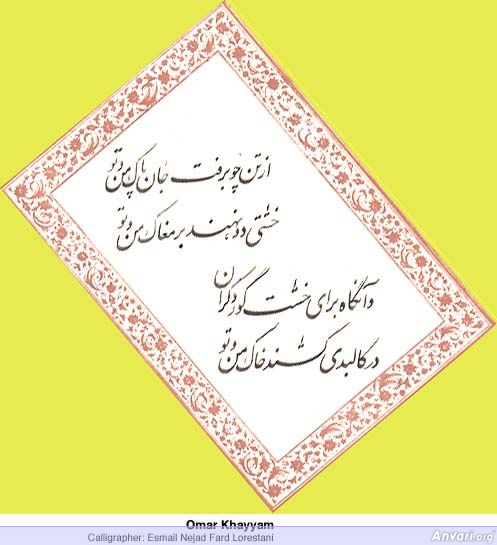 از تن چو برفت جان پاک من و تو
خشتی دو نهند بر مغاک من و تو
وآنگاه برای خشت گور دگران
در کالبدی کشند خاک من و تو
Omar Khayyam
Calligrapher: Esmail Nejad Fard Lorestani
Anvari.org